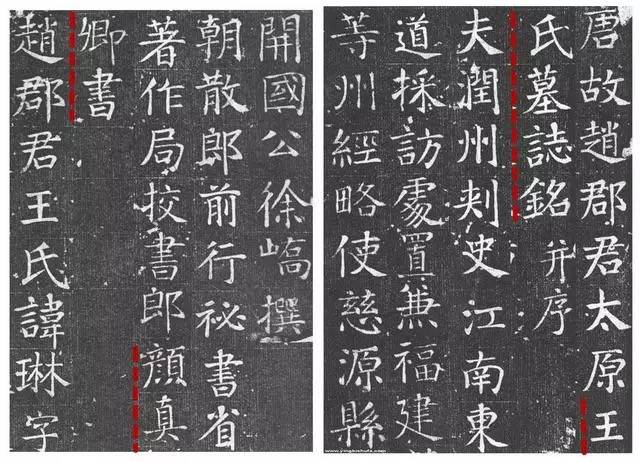 唐故趙郡君太原王
氏墓誌銘并序
夫潤州刾史江南東
道採訪處置兼福建
等州經略使慈源縣
開國公徐嶠撰
朝散郎前行祕書省
著作局挍書郎顏真
卿書
趙郡君王氏諱琳字
www.yingbishufa.com